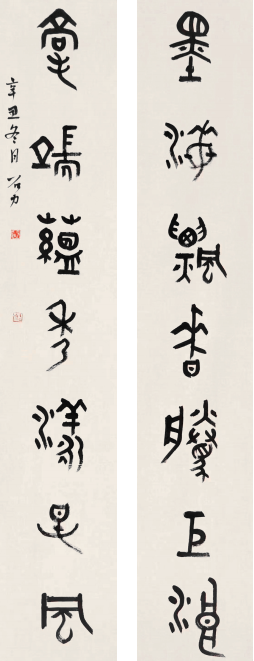 墨海飄香騰巨浪
毫端蘊秀漾風
辛丑冬月谷力